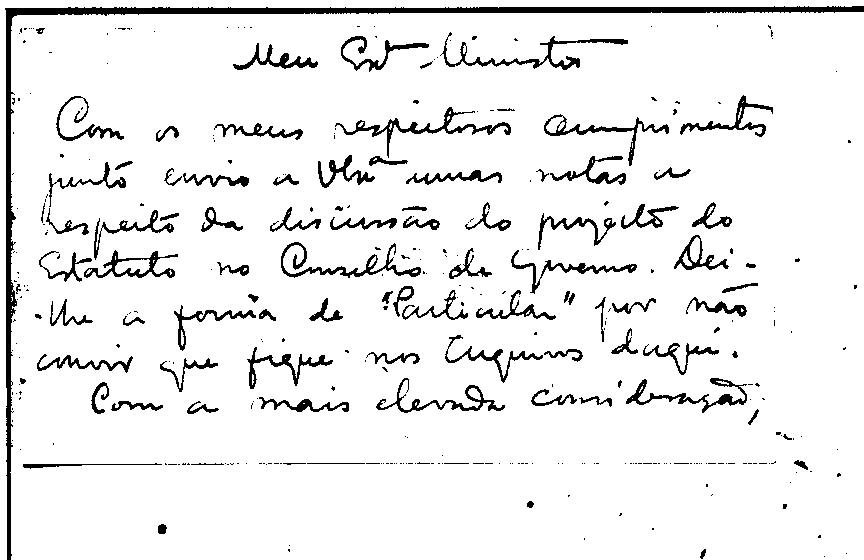 Meu Exº Ministro
Com os meus respeitosos cumprimentos
junto envio a VExª umas notas a
respeito da discussão do projecto do
Estatuto no Conselho de Governo. Dei-
-lhe a forma de "Particular" por não
convir que fique nos Arquivos daqui.
Com a mais elevada consideração,